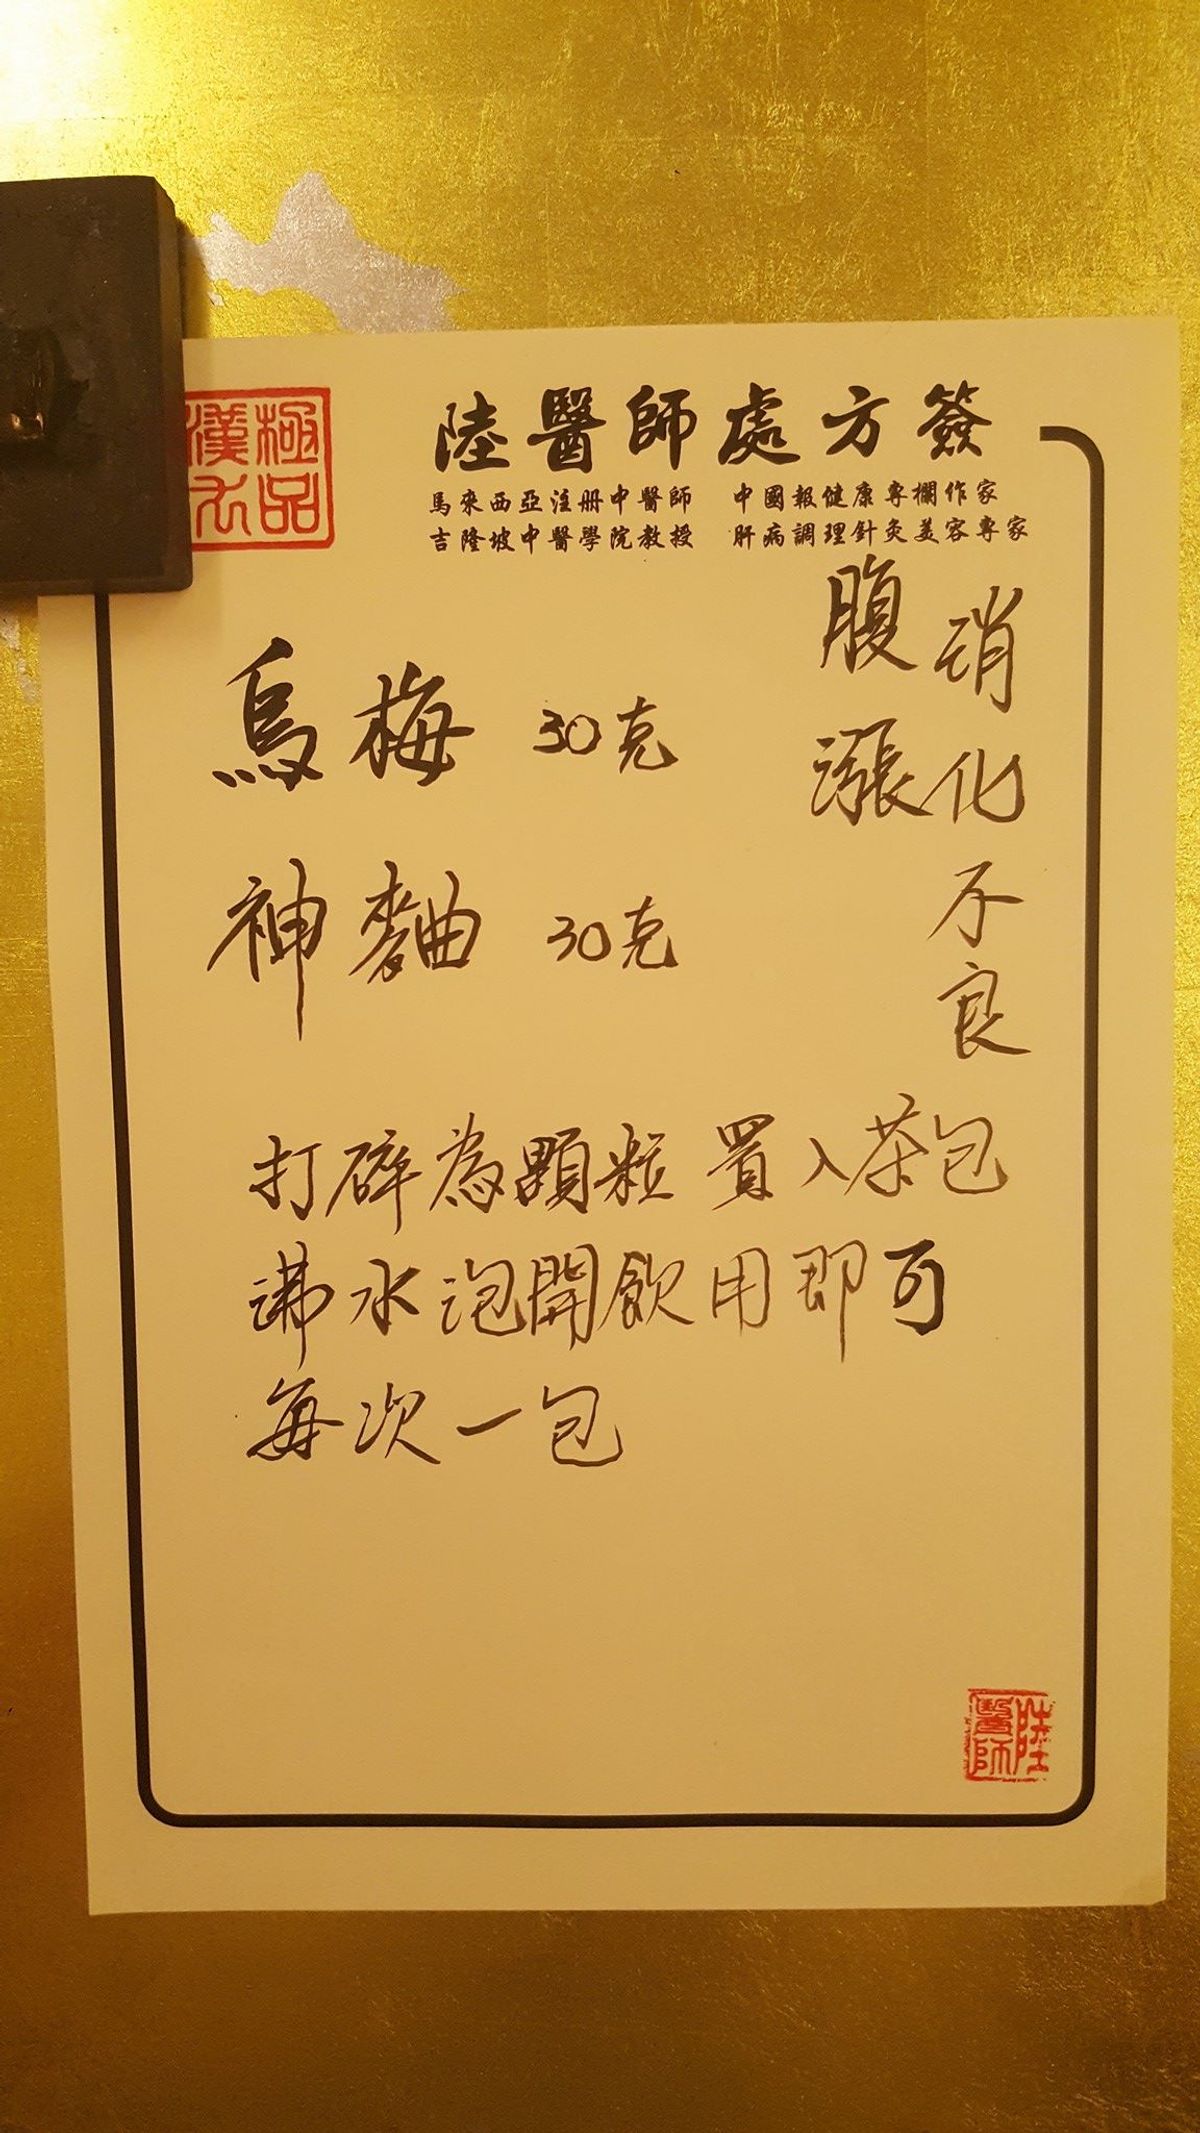 極品漢方
陸醫師處方簽
馬來西亞注册中醫師 中國報健康專欄作家
吉隆坡中醫學院教授 肝病調理針灸美容專家
消化不良
腹漲
烏梅 30克
神麯 30克
打碎為顆粒 置入茶包
沸水泡開飲用即可
每次一包
陸醫師